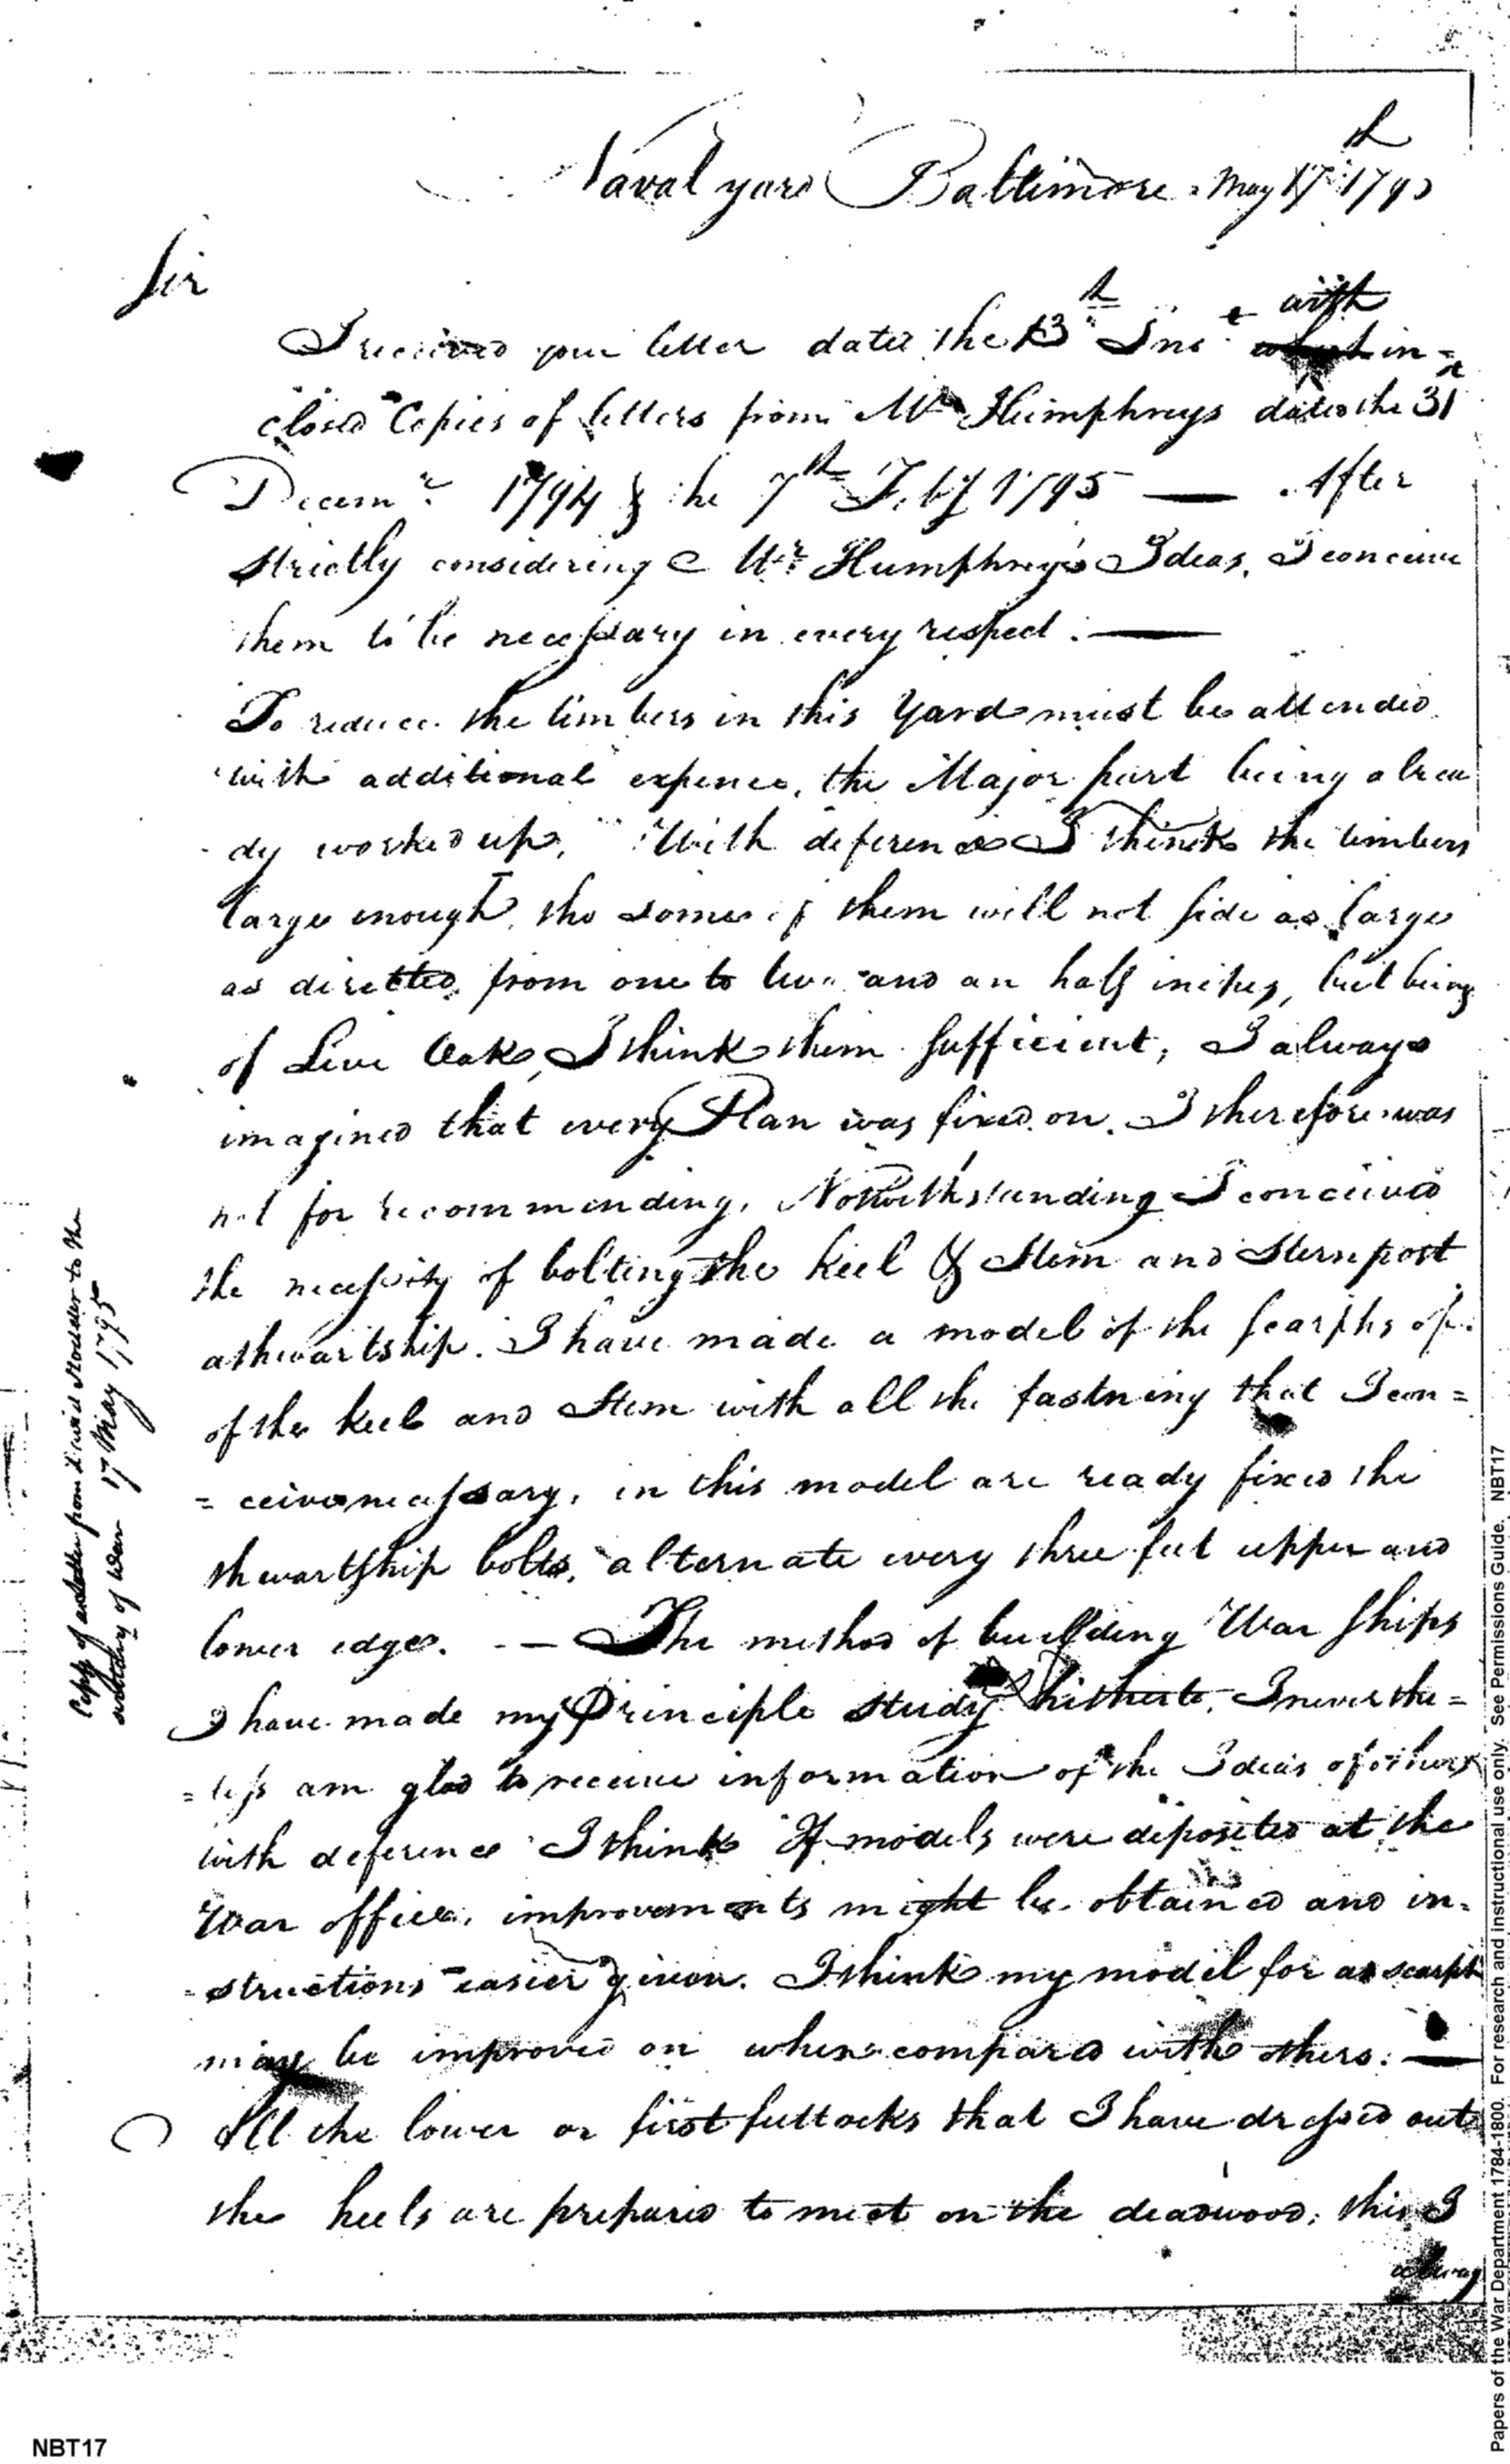 Naval yard Baltimore May 17th 1795
Sir
I received your letter dated the 13th Inst with in=
closed Copies of letters from Mr Humphreys dated the 31st
Decemr 1794 & the 7th Feby 1795 — After
strictly considering Mr Humphrey's Ideas, I conceive
them to be necessary in every respect. —
To reduce the timbers in this Yard must be attended
with additional expence, the Major part being alrea
dy worked up, With deference I think the timbers
large enough, tho some of them will not side as large
as directed, from one to two and an half inches, but being
of Live Oak, I think them sufficient, I always
imagined that every Plan was fixed on. I therefore was
not for recommending, Notwithstanding I conceived
the necessity of bolting the keel & Stem and Sternpost
athwartship. I have made a model of the scarphs of
of the keel and Stem with all the fastning that I con=
=ceive necessary, in this model are ready fixed the
thwartship bolts, alternate every three feet upper and
lower edge. — The method of building War Ships
I have made my Principle study hitherto, I neverthe=
=less am glad to receive information of the Ideas of others
with deference I think If models were deposited at the
War office, improvements might be obtained and in=
structions easier given. I think my model for a scarph
may be improved on when compared with others. —
All the lower or first futtocks that I have dressed out
the heels are prepared to meet on the deadwood, this I
alway
Copy of a letter from David Stodder to the
secretary of War 17 May 1795
Papers of the War Department 1784-1800. For research and instructional use only. See Permissions Guide. NBT17
NBT17